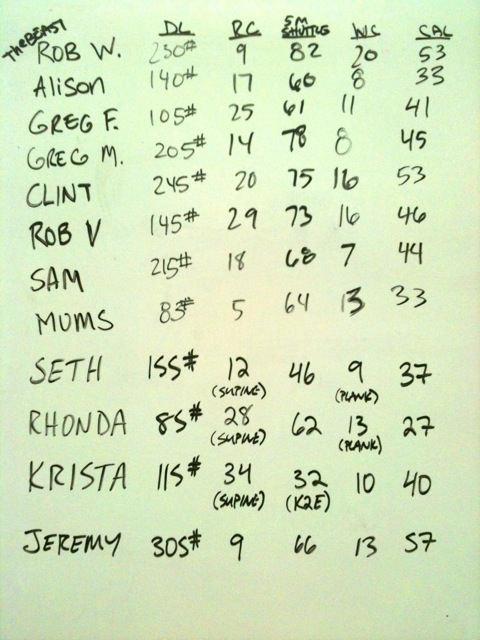 DL RC 5M SHUTTLE WC CAL
THE BEAST
ROB W. 230# 9 82 20 53
ALISON 140# 17 60 8 33
GREG F. 105# 25 61 11 41
GREG M. 205# 14 78 8 45
CLINT 245# 20 75 16 53
ROB V 145# 29 73 16 46
SAM 215# 18 68 7 44
MUMS 83# 5 64 13 33
SETH 155# 12 46 9 37
(SUPINE) (PLANK)
RHONDA 85# 28 62 13 27
(SUPINE) (PLANK)
KRISTA 115# 34 32 10 40
(SUPINE) (K2E)
JEREMY 305# 9 66 13 57